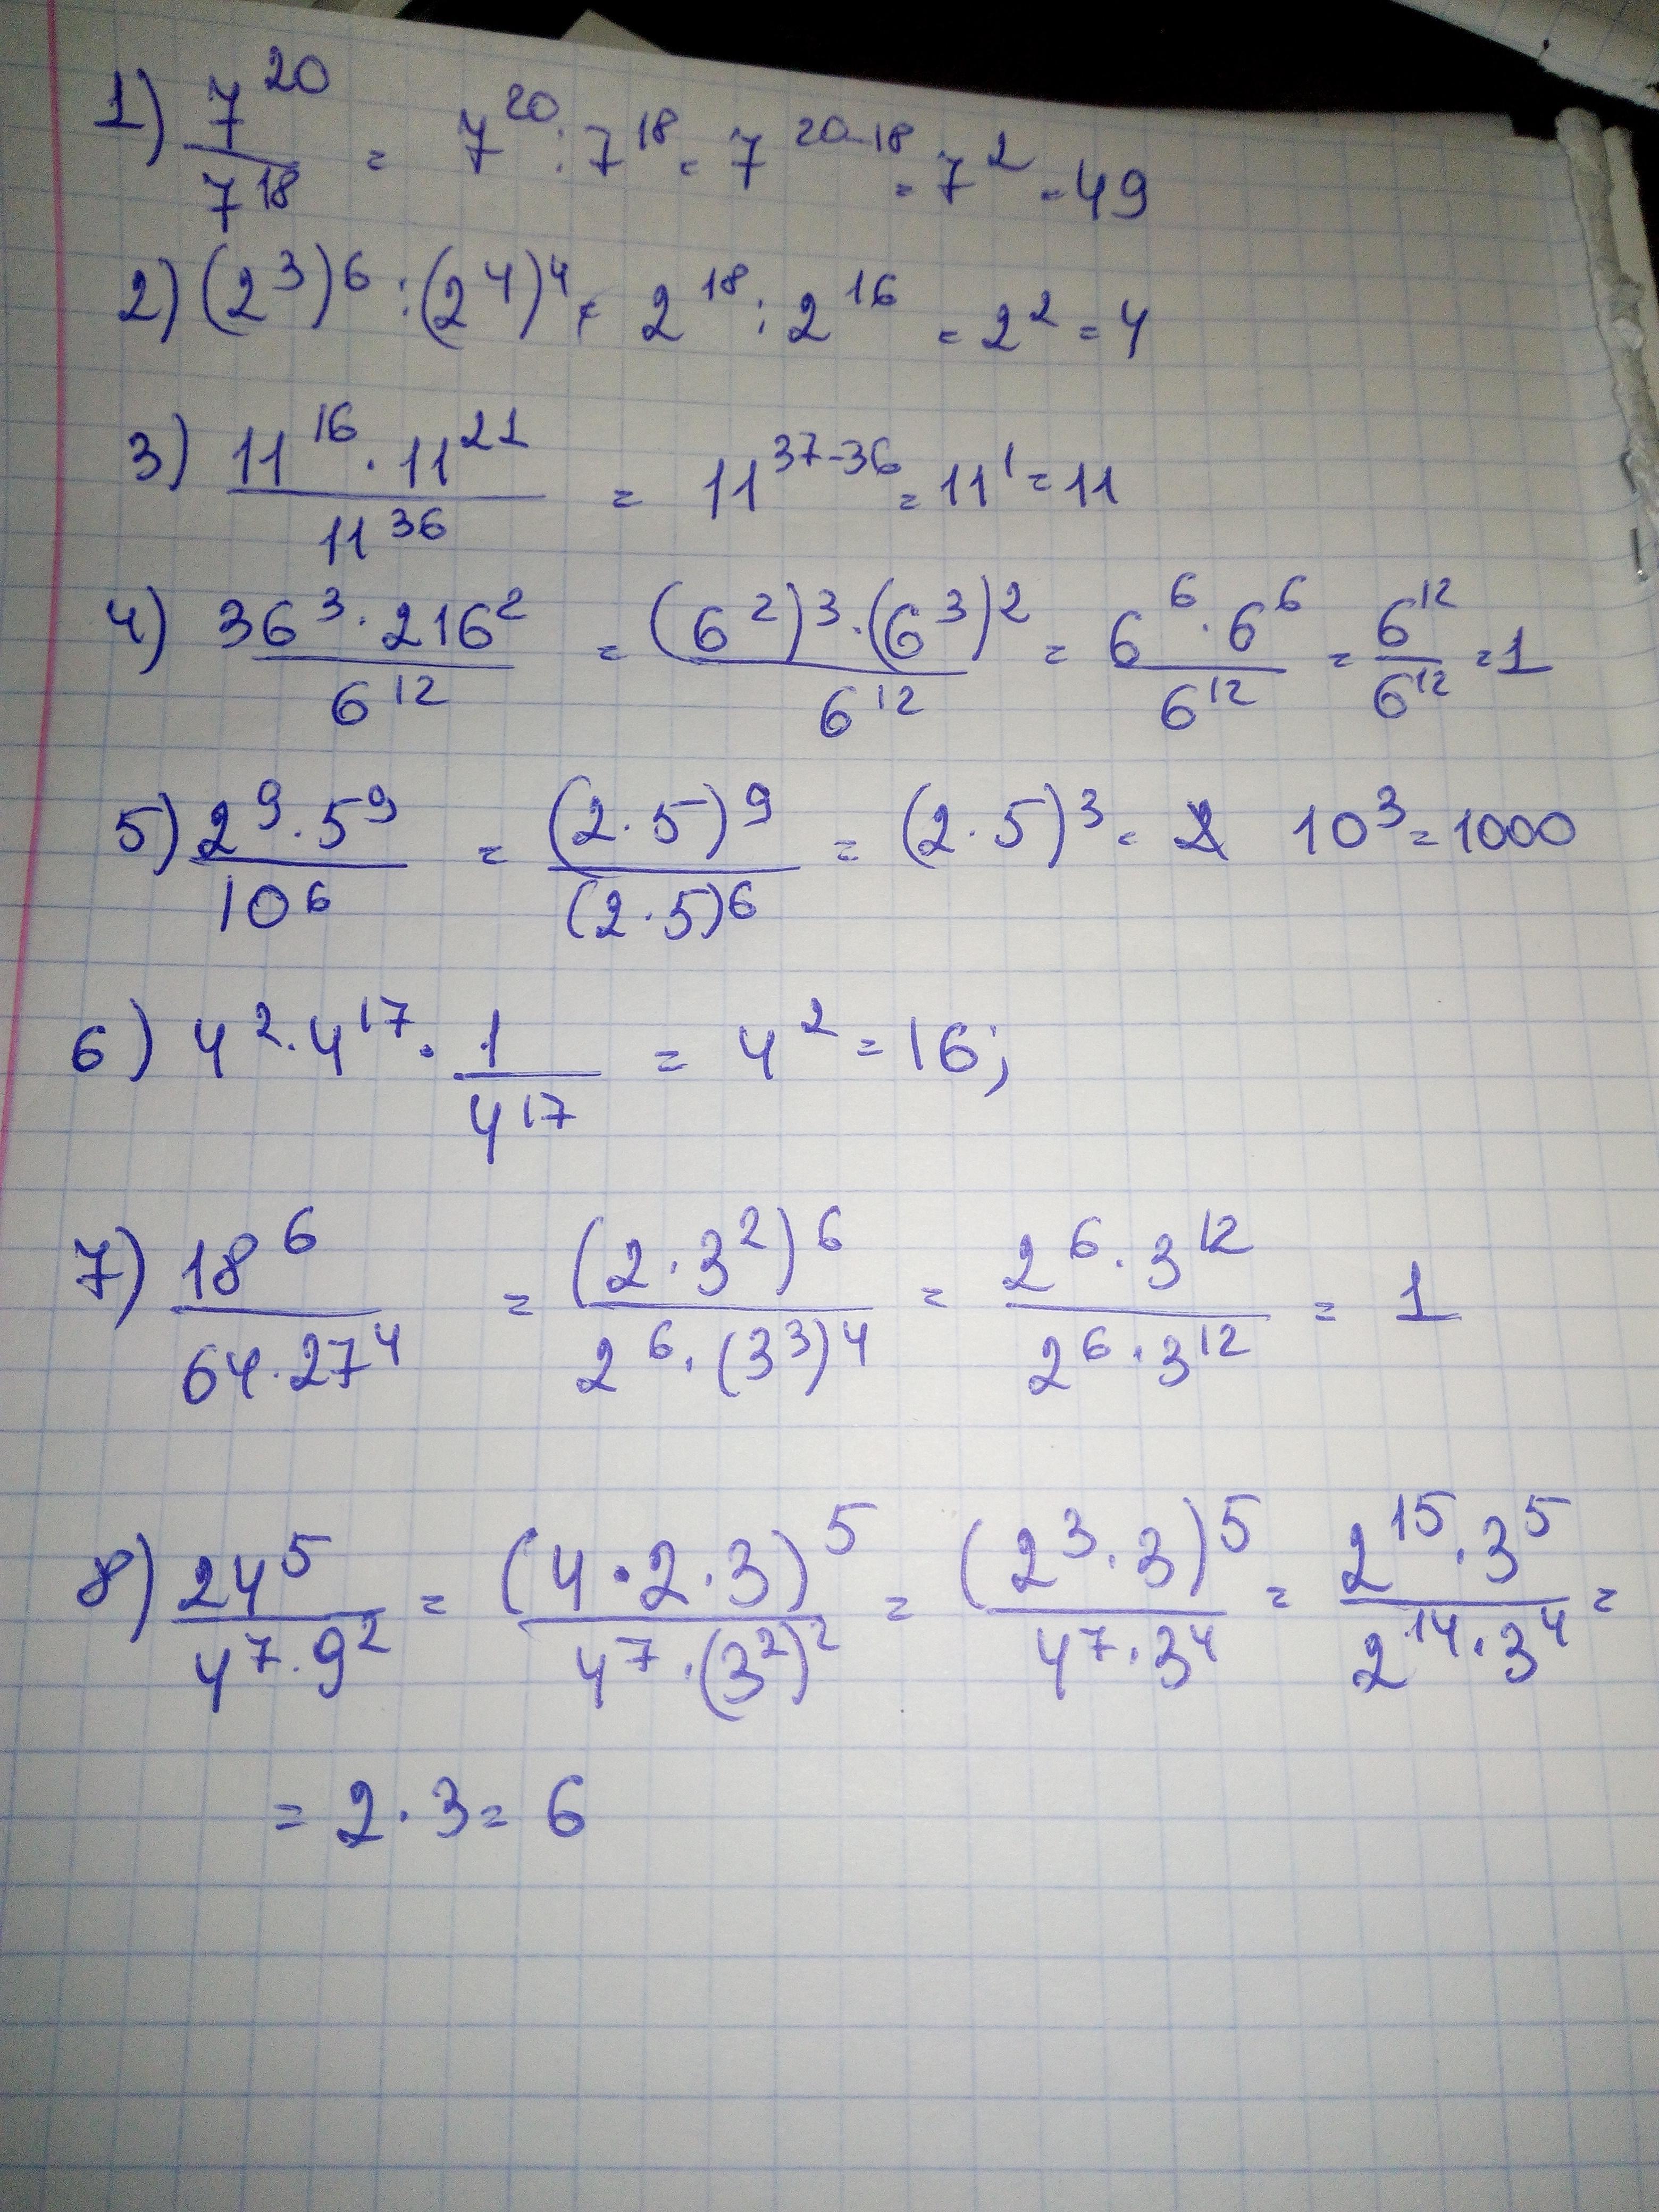 1) 7^20 / 7^18 = 7^20 : 7^18 = 7^20-18 = 7^2 = 49
2) (2^3)^6 : (2^4)^4 = 2^18 : 2^16 = 2^2 = 4
3) 11^16 · 11^21 / 11^36 = 11^37-36 = 11^1 = 11
4) 36^3 · 216^2 / 6^12 = (6^2)^3 · (6^3)^2 / 6^12 = 6^6 · 6^6 / 6^12 = 6^12 / 6^12 = 1
5) 2^9 · 5^9 / 10^6 = (2 · 5)^9 / (2 · 5)^6 = (2 · 5)^3 = 10^3 = 1000
6) 4^2 · 4^17 · 1 / 4^17 = 4^2 = 16;
7) 18^6 / 64 · 27^4 = (2 · 3^2)^6 / 2^6 · (3^3)^4 = 2^6 · 3^12 / 2^6 · 3^12 = 1
8) 24^5 / 4^7 · 9^2 = (4 · 2 · 3)^5 / 4^7 · (3^2)^2 = (2^3 · 3)^5 / 4^7 · 3^4 = 2^15 · 3^5 / 2^14 · 3^4 =
= 2 · 3 = 6